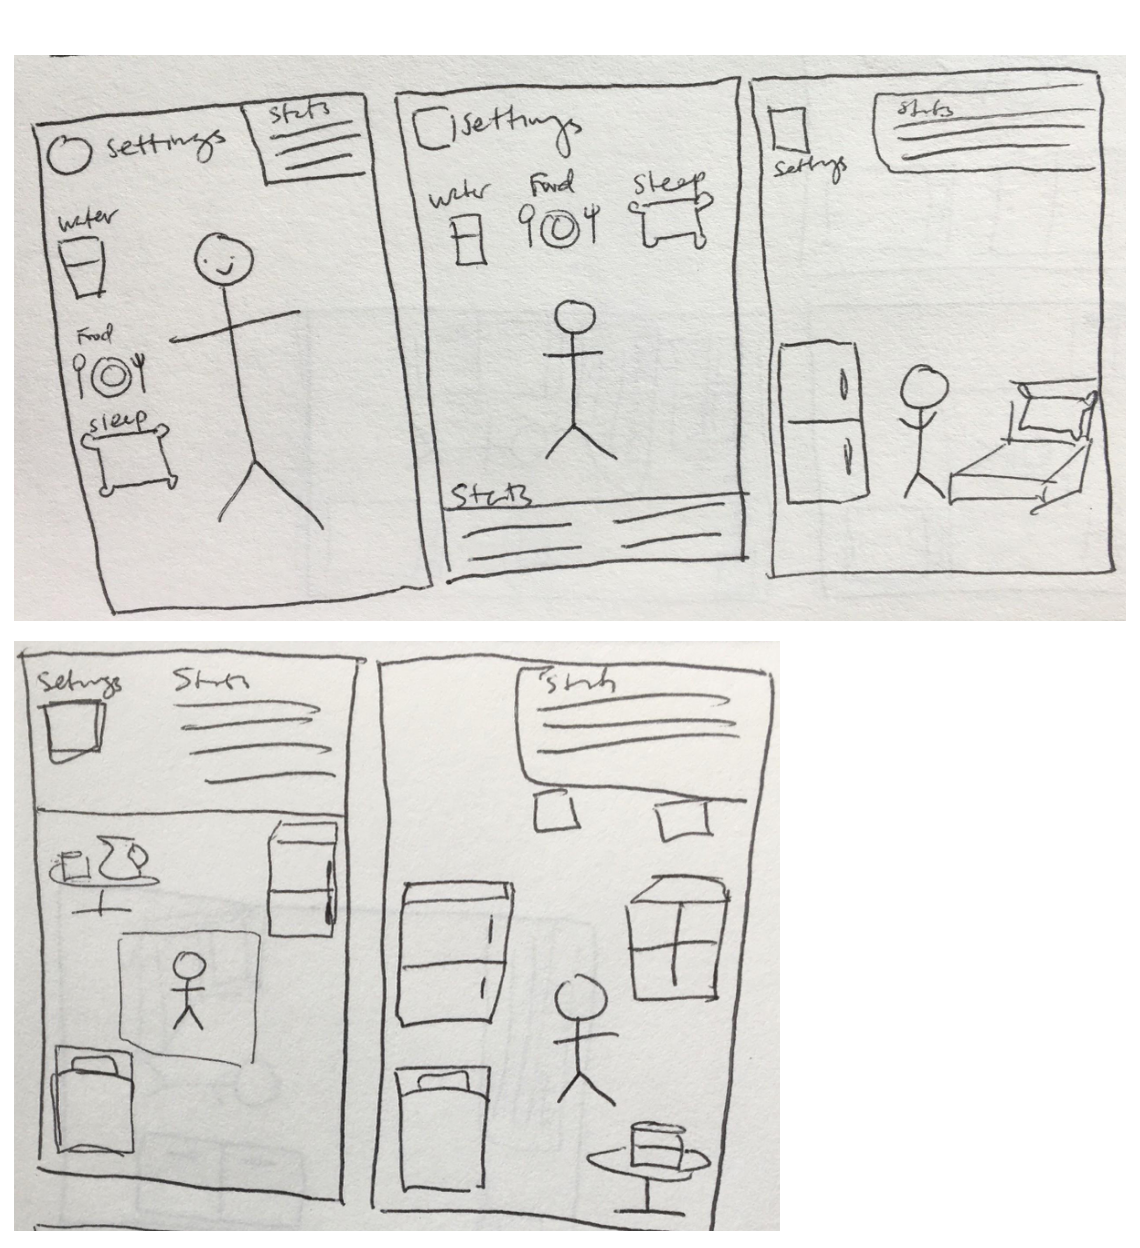 settings
stats
water
Food
sleep
settings
water
Food
Sleep
Stats
stats
settings
Settings
Stats
Stats